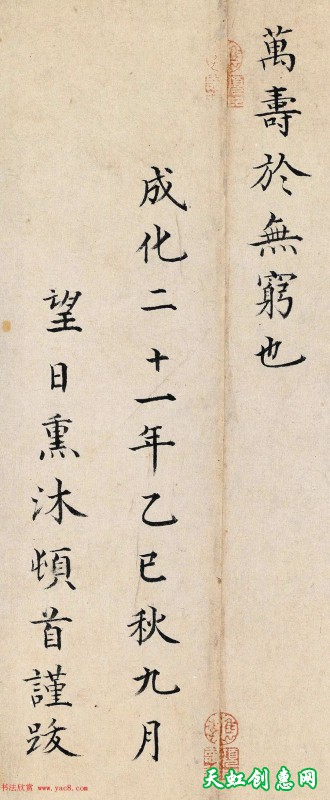 萬壽於無窮也
成化二十一年乙巳秋九月
望日熏沐頓首謹跋
书法欣赏 www.yac8.com
天虹创惠网